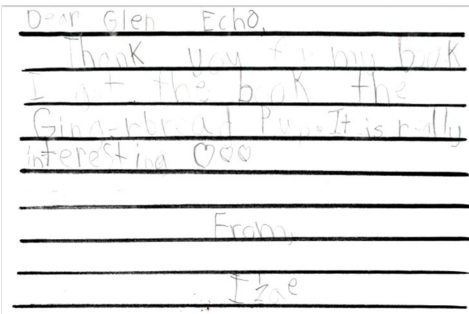 Dear Glen Echo,
Thank you for my book
I got the book the
Gingerbread Pup. It is really
interesting ♡♡♡
From,